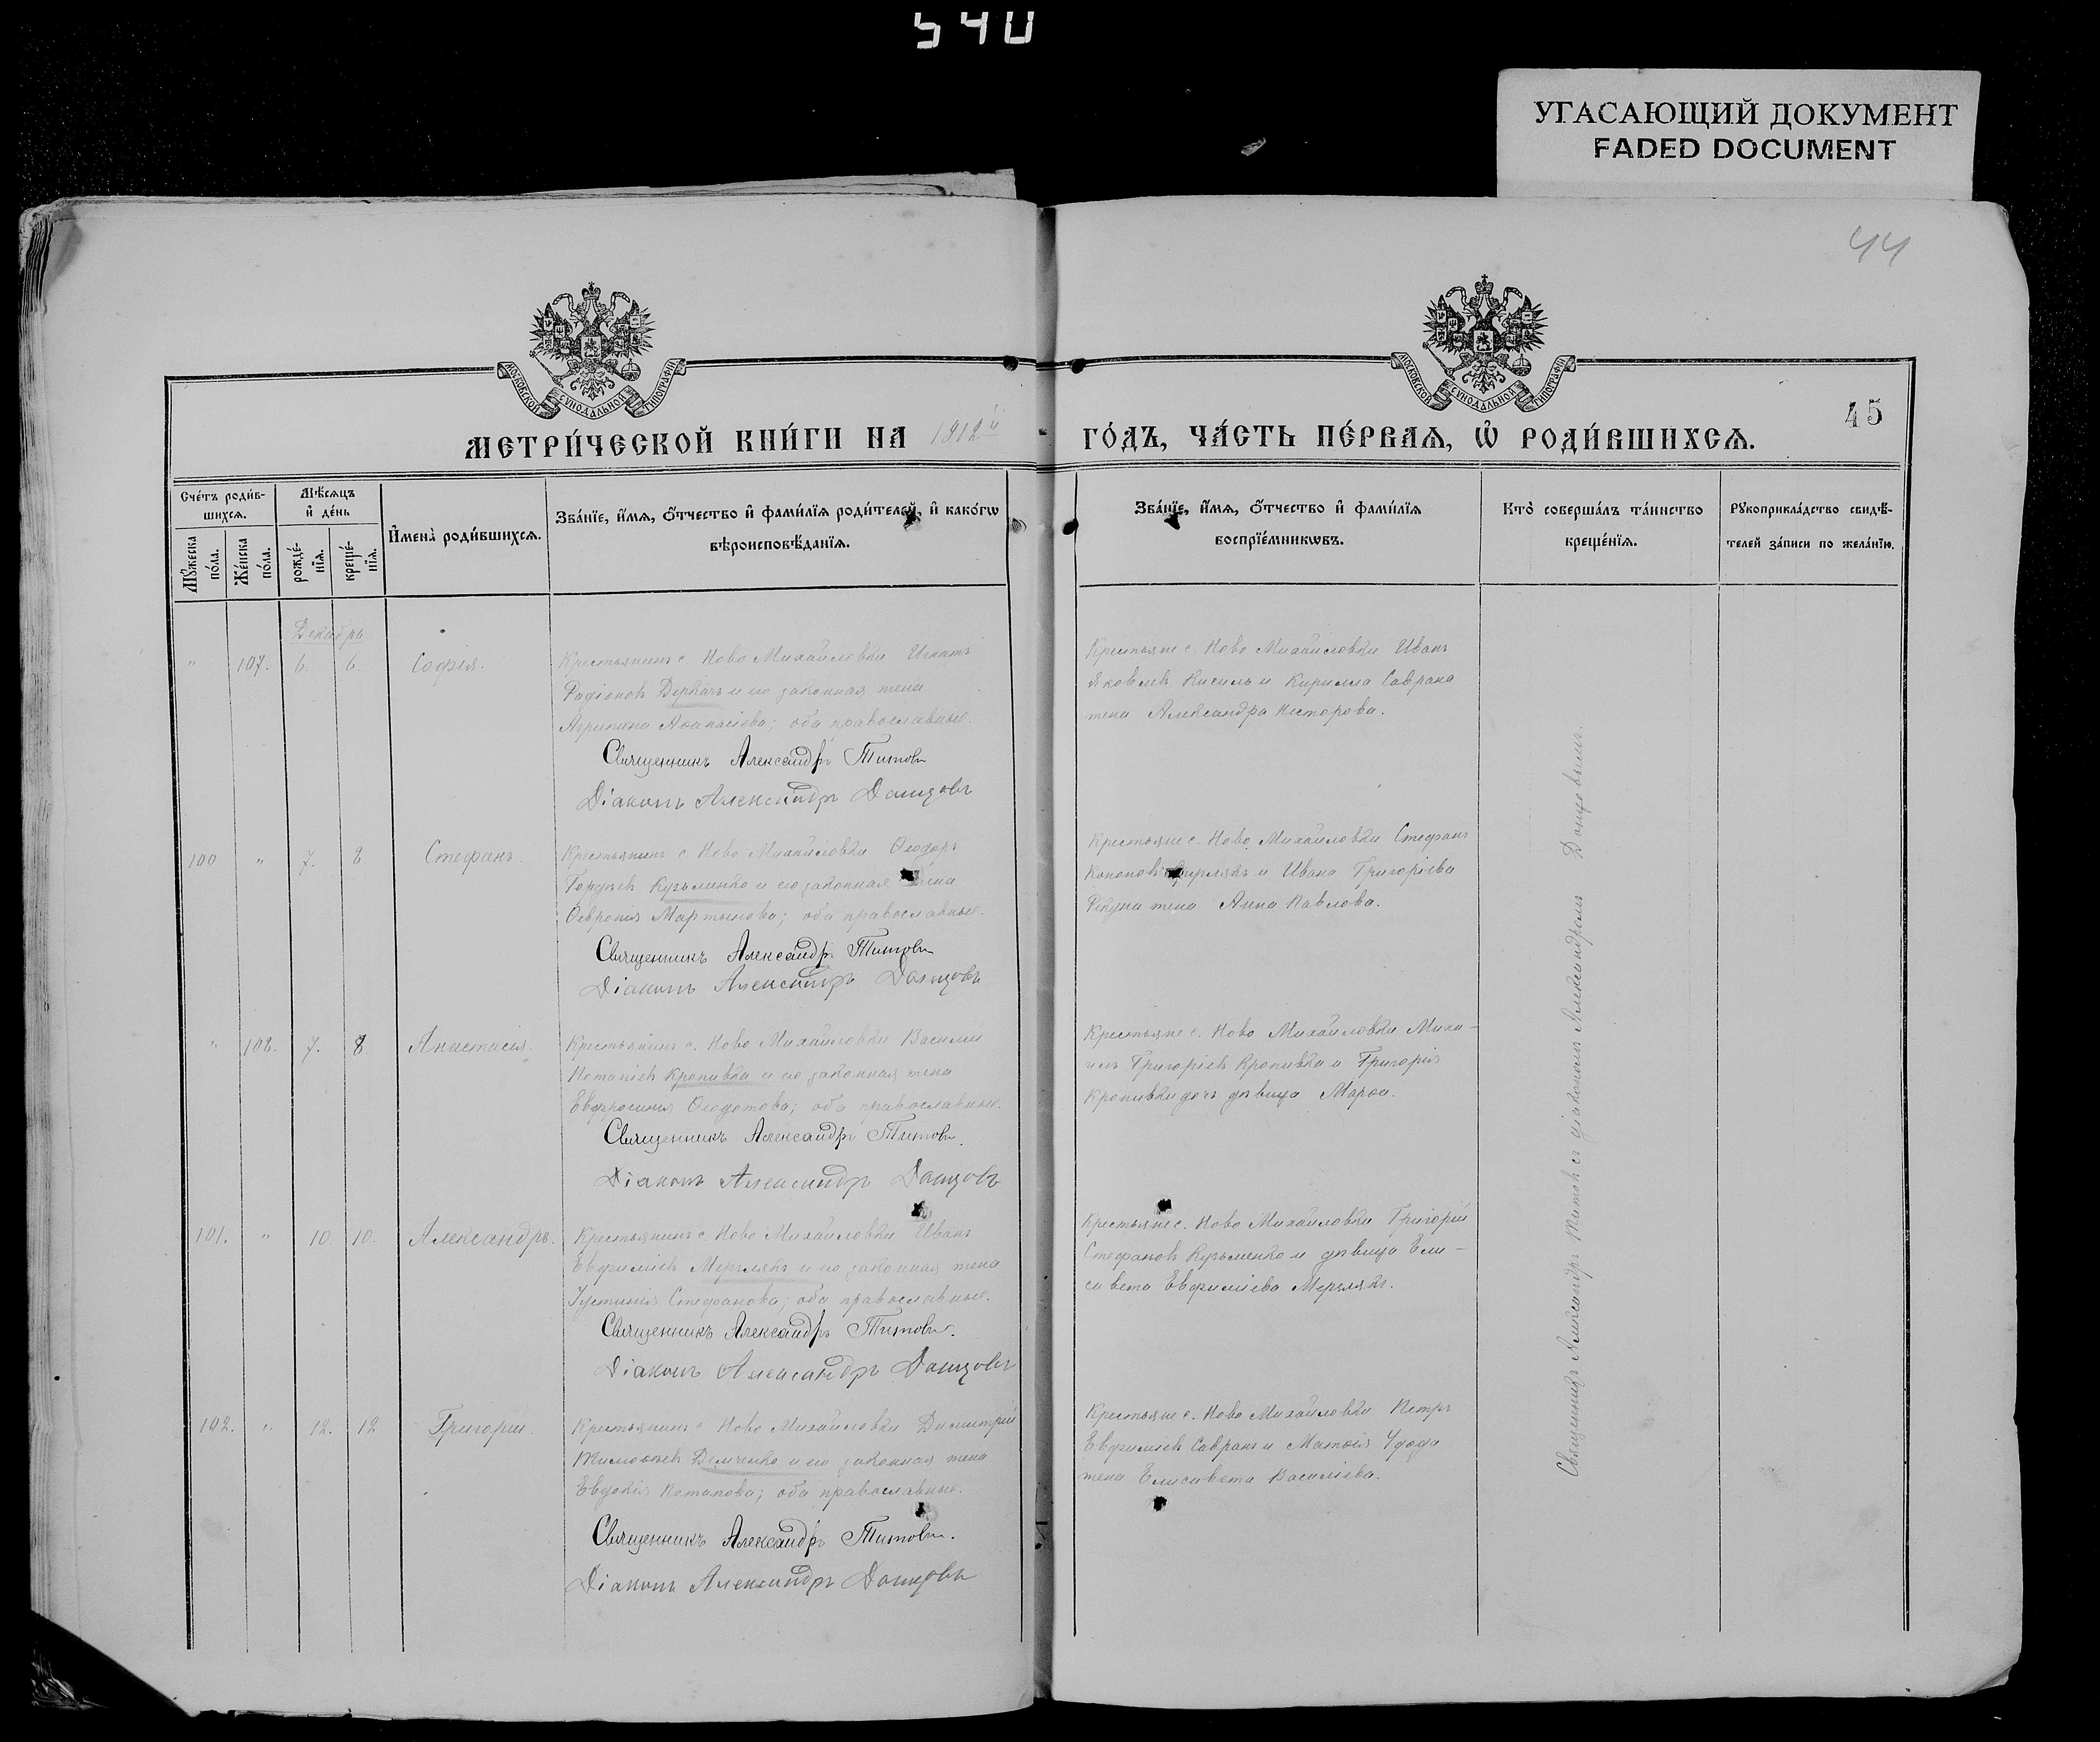 540
УГАСАЮЩИЙ ДОКУМЕНТ
FADED DOCUMENT
44
45
МОСКОВСКОЙ СѴНОДАЛЬНОЙ ТИПОГРАФІИ
МОСКОВСКОЙ СѴНОДАЛЬНОЙ ТИПОГРАФІИ
МЕТРИ́ЧЕСКОЙ КНИ́ГИ НА 1912й ГО́ДЪ, ЧА́СТЬ ПЕ́РВАѦ, Ѽ РОДИ́ВШИХСѦ.
Сче́тъ роди́в-
шихсѧ.
Мѣ́сѧцъ
и҆ де́нь
Мꙋ́жеска
по́ла.
Же́нска
по́ла.
рожде́-
нїѧ.
креще́-
нїѧ.
И҆мена̀ роди́вшихсѧ.
Зва́нїе, и҆́мѧ, ѻ҆́тчество и҆ фами́лїѧ роди́телей, и҆ како́гѡ
вѣроисповѣ́данїѧ.
Зва́нїе, и҆́мѧ, ѻ҆́тчество и҆ фами́лїѧ
воспрїе́мникѡвъ.
Кто̀ соверша́лъ та́инство
креще́нїѧ.
Рꙋкоприкла́дство свидѣ́-
телей за́писи по жела́нїю.
Декабрь.
" 107. 6. 6. Софія.
Крестьянинъ с. Ново Михайловки Игнатъ
Родіоновъ Деркачъ и его законная жена
Агрипина Аѳанасіева; оба православные.
Священникъ Александръ Титовъ
Діаконъ Александръ Донцовъ
Крестьяне с. Ново Михайловки Иванъ
Яковлевъ Кисиль и Кирилла Саврана
жена Александра Несторова.
100 " 7. 8. Стефанъ.
Крестьянинъ с. Ново Михайловки Ѳеодоръ
Гордіевъ Кузьменко и его законная жена
Ѳевронія Мартынова; оба православные.
Священникъ Александръ Титовъ
Діаконъ Александръ Донцовъ
Крестьяне с. Ново Михайловки Стефанъ
Кононовъ и Ивана Григоріева
жена Анна Павлова.
" 108. 7. 8 Анастасія.
Крестьянинъ с. Ново Михайловки Василій
Кропивка и его законная жена
Евфросинія Ѳеодотова; оба православные.
Священникъ Александръ Титовъ.
Діаконъ Александръ Донцовъ
Крестьяне с. Ново Михайловки Миха-
илъ Григоріевъ Кропивка и Григорія
Кропивки дочь дѣвица Марѳа.
101. " 10 10. Александръ.
Крестьянинъ с. Ново Михайловки Иванъ
Евфиміевъ Мерзлякъ и его законная жена
Іустинія Стефанова; оба православные.
Священникъ Александръ Титовъ.
Діаконъ Александръ Донцовъ
Крестьяне с. Ново Михайловки Григорій
Стефановъ Кузьменко и дѣвица Ели-
савета Евфиміева Мерзлякъ.
102. " 12. 12. Григорій.
Крестьянинъ с. Ново Михайловки Димитрій
Тимоѳеевъ Демченко и его законная жена
Евдокія Потапова; оба православные.
Священникъ Александръ Титовъ.
Діаконъ Александръ Донцовъ
Крестьяне с. Ново Михайловки Петръ
Евфиміевъ Савранъ и Матѳія Удода
жена Елисавета Василіева.
Священникъ Александръ Титовъ съ діакономъ Александромъ Донцовымъ.